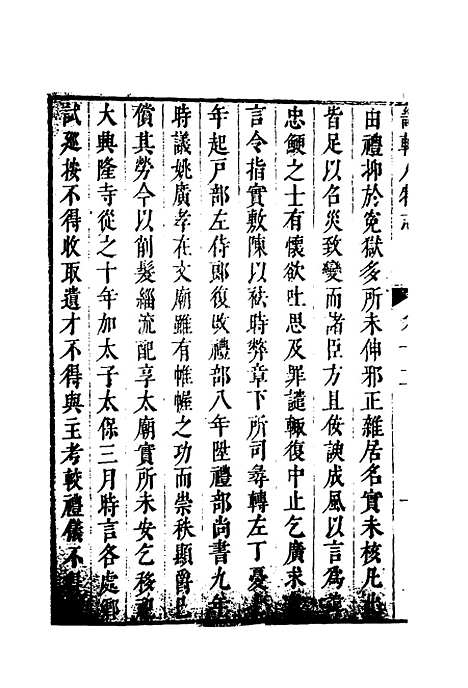 由禮抑於冤獄多所未伸邪正雜居名實未核凡此
皆足以名災致變而諸臣方且佞諛成風以言為
忠鯁之士有懷欲吐思及罪譴輒復中止乞廣求
言令指實敷陳以祛時弊章下所司尋轉左丁憂
年起戶部左侍郎復改禮部八年陞禮部尚書九年
時議姚廣孝在文廟雖有帷幄之功而崇秩顯爵已
償其勞今以削髮緇流配享太廟實所未安乞移
大興隆寺從之十年加太子太保三月時言各處鄉
試巡按不得收取遺才不得與主考較禮儀不